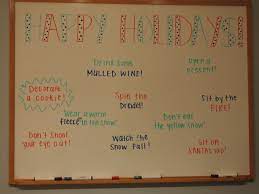 HAPPY HOLIDAYS!
Drink some
MULLED WINE!
Open a
present!
Decorate
a cookie!
Spin the
Dreidel!
Sit by the
FIRE!
Wear a warm
fleece in the snow!
Don't eat
the yellow snow!
Don't shoot
your eye out!
Watch the
Snow Fall!
Sit on
SANTA'S lap!